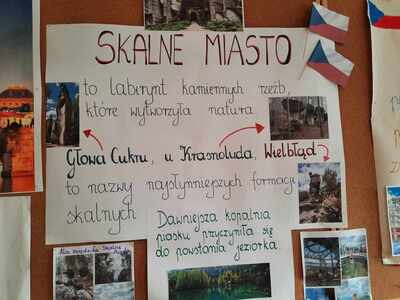 SKALNE MIASTO
to labirynt kamiennych rzeźb,
które wytworzyła natura
Głowa Cukru, u Krasnoluda, Wielbłąd
to nazwy najsłynniejszych formacji
skalnych
Dawniejsza kopalnia
piasku przyczyniła się
do powstania jeziorka.